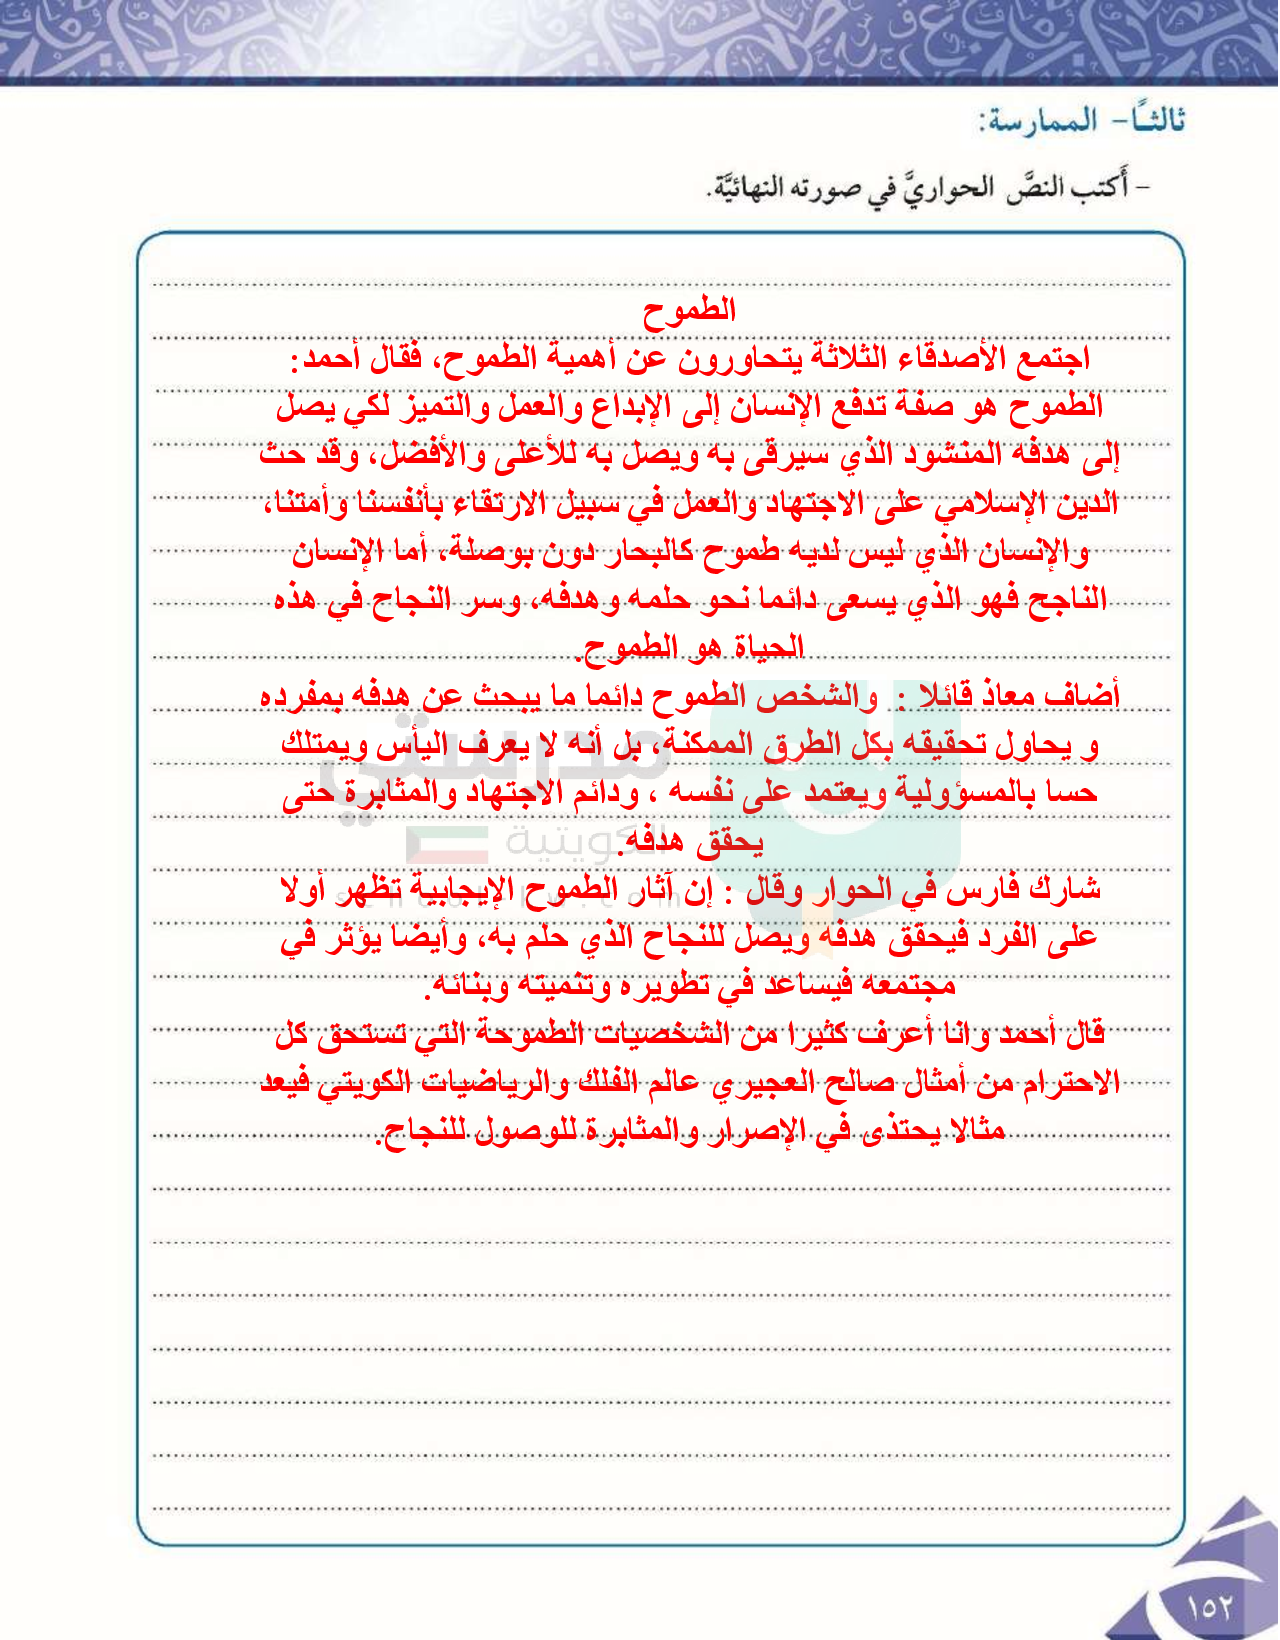 ثالثًا- الممارسة:
- أَكتب النصَّ الحواريَّ في صورته النهائيَّة.
الطموح
اجتمع الأصدقاء الثلاثة يتحاورون عن أهمية الطموح، فقال أحمد:
الطموح هو صفة تدفع الإنسان إلى الإبداع والعمل والتميز لكي يصل
إلى هدفه المنشود الذي سيرقى به ويصل به للأعلى والأفضل، وقد حث
الدين الإسلامي على الاجتهاد والعمل في سبيل الارتقاء بأنفسنا وأمتنا،
والإنسان الذي ليس لديه طموح كالبحار دون بوصلة، أما الإنسان
الناجح فهو الذي يسعى دائما نحو حلمه وهدفه، وسر النجاح في هذه
الحياة هو الطموح.
أضاف معاذ قائلا : والشخص الطموح دائما ما يبحث عن هدفه بمفرده
و يحاول تحقيقه بكل الطرق الممكنة، بل أنه لا يعرف اليأس ويمتلك
حسا بالمسؤولية ويعتمد على نفسه ، ودائم الاجتهاد والمثابرة حتى
يحقق هدفه.
شارك فارس في الحوار وقال : إن آثار الطموح الإيجابية تظهر أولا
على الفرد فيحقق هدفه ويصل للنجاح الذي حلم به، وأيضا يؤثر في
مجتمعه فيساعد في تطويره وتنميته وبنائه.
قال أحمد وانا أعرف كثيرا من الشخصيات الطموحة التي تستحق كل
الاحترام من أمثال صالح العجيري عالم الفلك والرياضيات الكويتي فيعد
مثالا يحتذى في الإصرار والمثابرة للوصول للنجاح.
مدرستي
الكويتية
١٥٢